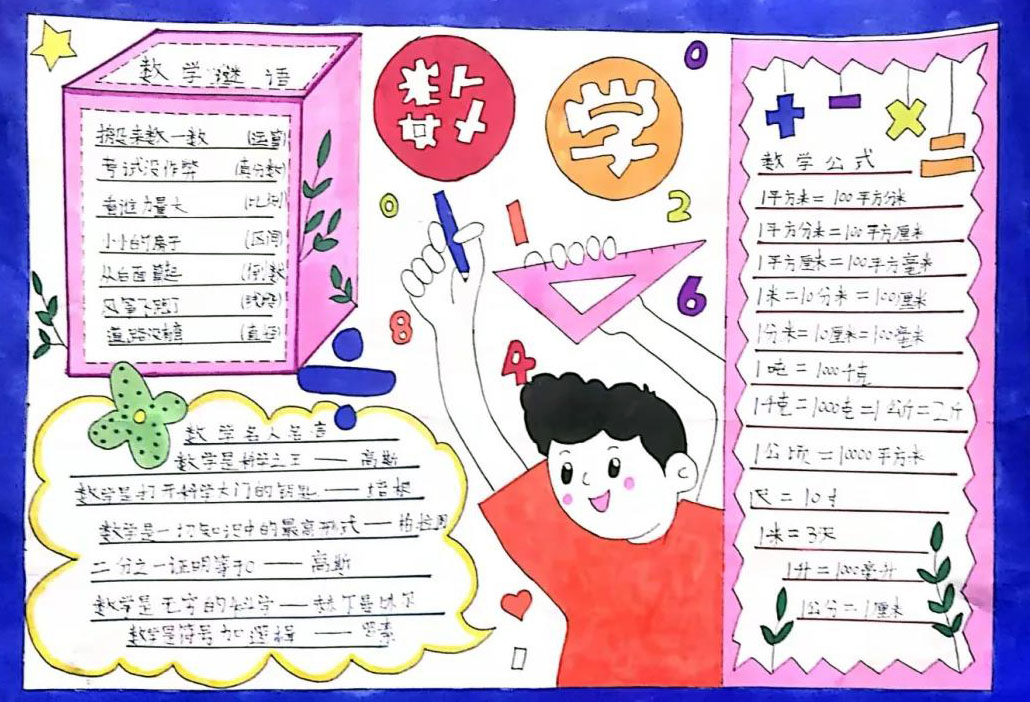 数学谜语
搬来数一数 (运算)
考试没作弊 (真分数)
看谁力量大 (比例)
小小的房子 (区间)
从后面算起 (倒数)
风筝下跑了 (线段)
道路没弯 (直径)
数学
0
0
1
2
6
8
4
数学名人名言
数学是科学之王——高斯
数学是打开科学大门的钥匙——培根
数学是一切知识中的最高形式——柏拉图
二分之一证明等于0——高斯
数学是无穷的科学——赫尔曼外尔
数学是符号加逻辑——罗素
+ - ×
数学公式
1平方米=100平方分米
1平方分米=100平方厘米
1平方厘米=100平方毫米
1米=10分米=100厘米
1分米=10厘米=100毫米
1吨=1000千克
1千克=1000克=1公斤=2斤
1公顷=10000平方米
尺=10寸
1米=3尺
1升=1000毫升
1公分=1厘米